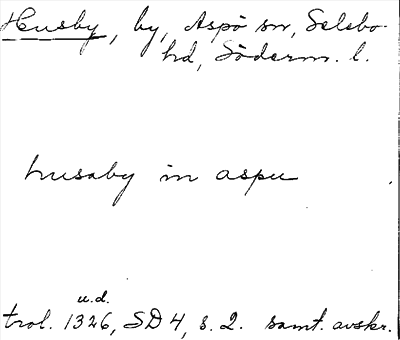 Husby, by, Aspö sn, Selebo
hd, Söderm. l.
husaby in aspu
u.d.
trol. 1326, SD 4, s. 2. samt. avskr.